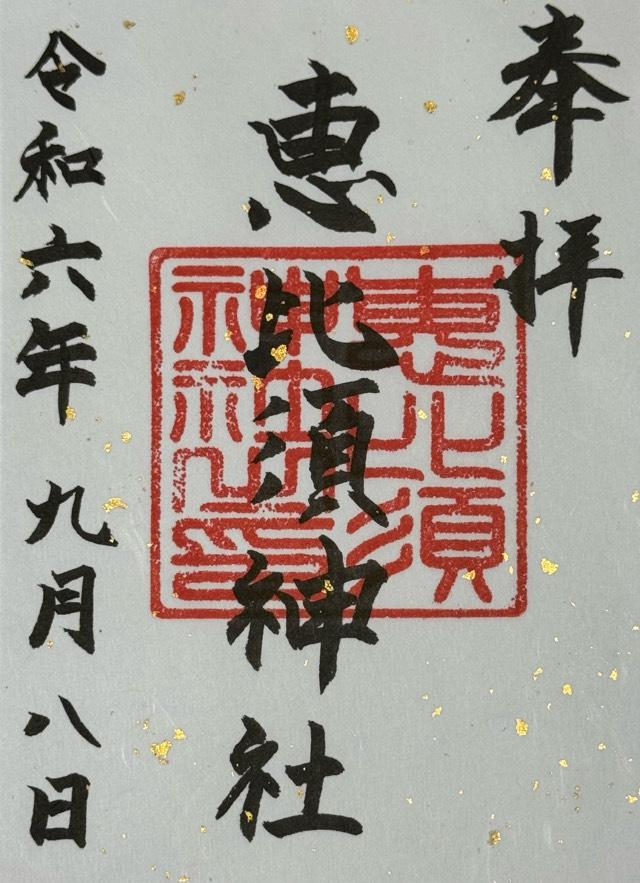 奉拝
恵比須神社
令和六年九月八日
恵比須
神社